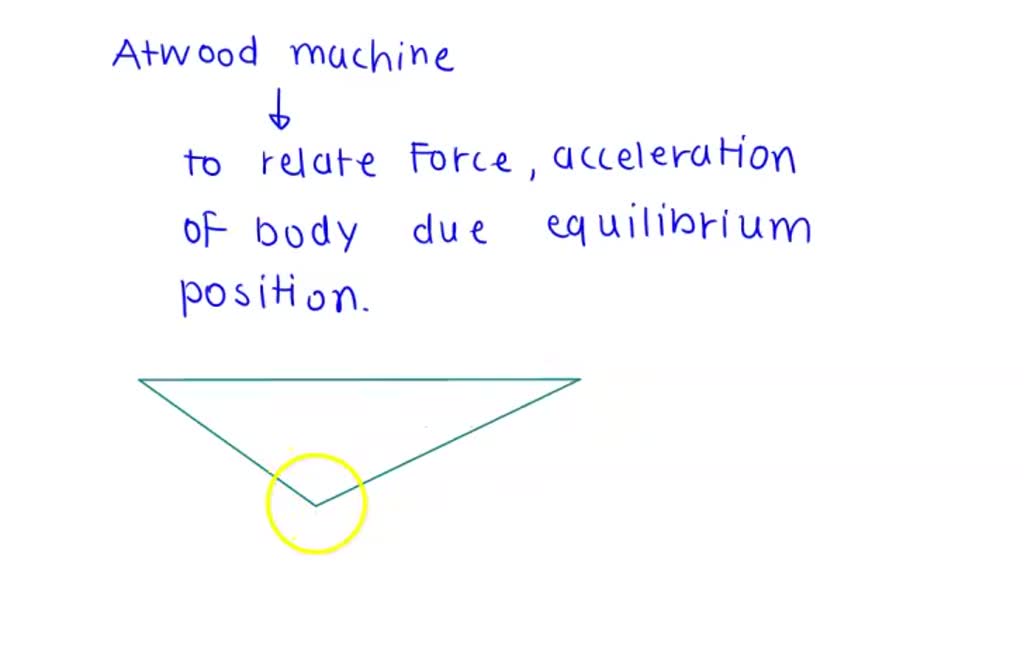 Atwood machine
to relate Force, acceleration
of body due equilibrium
position.